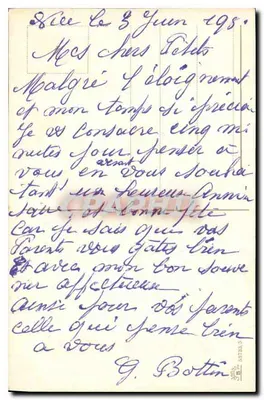 Nice le 3 Juin 195.
Mes chers Petits
Malgré l'éloignement
et mon temps si précieux
Je vs consacre cinq mi
nutes pour penser à
vous avant en vous souhai
tant un heureux Anniv
saire et bonne fête
Car je sais que vos
Parents vous gâtes bien
et avec mon bon souve
nir affectueux
ainsi pour vos parents
celle qui pense bien
à vous
G. Bottin